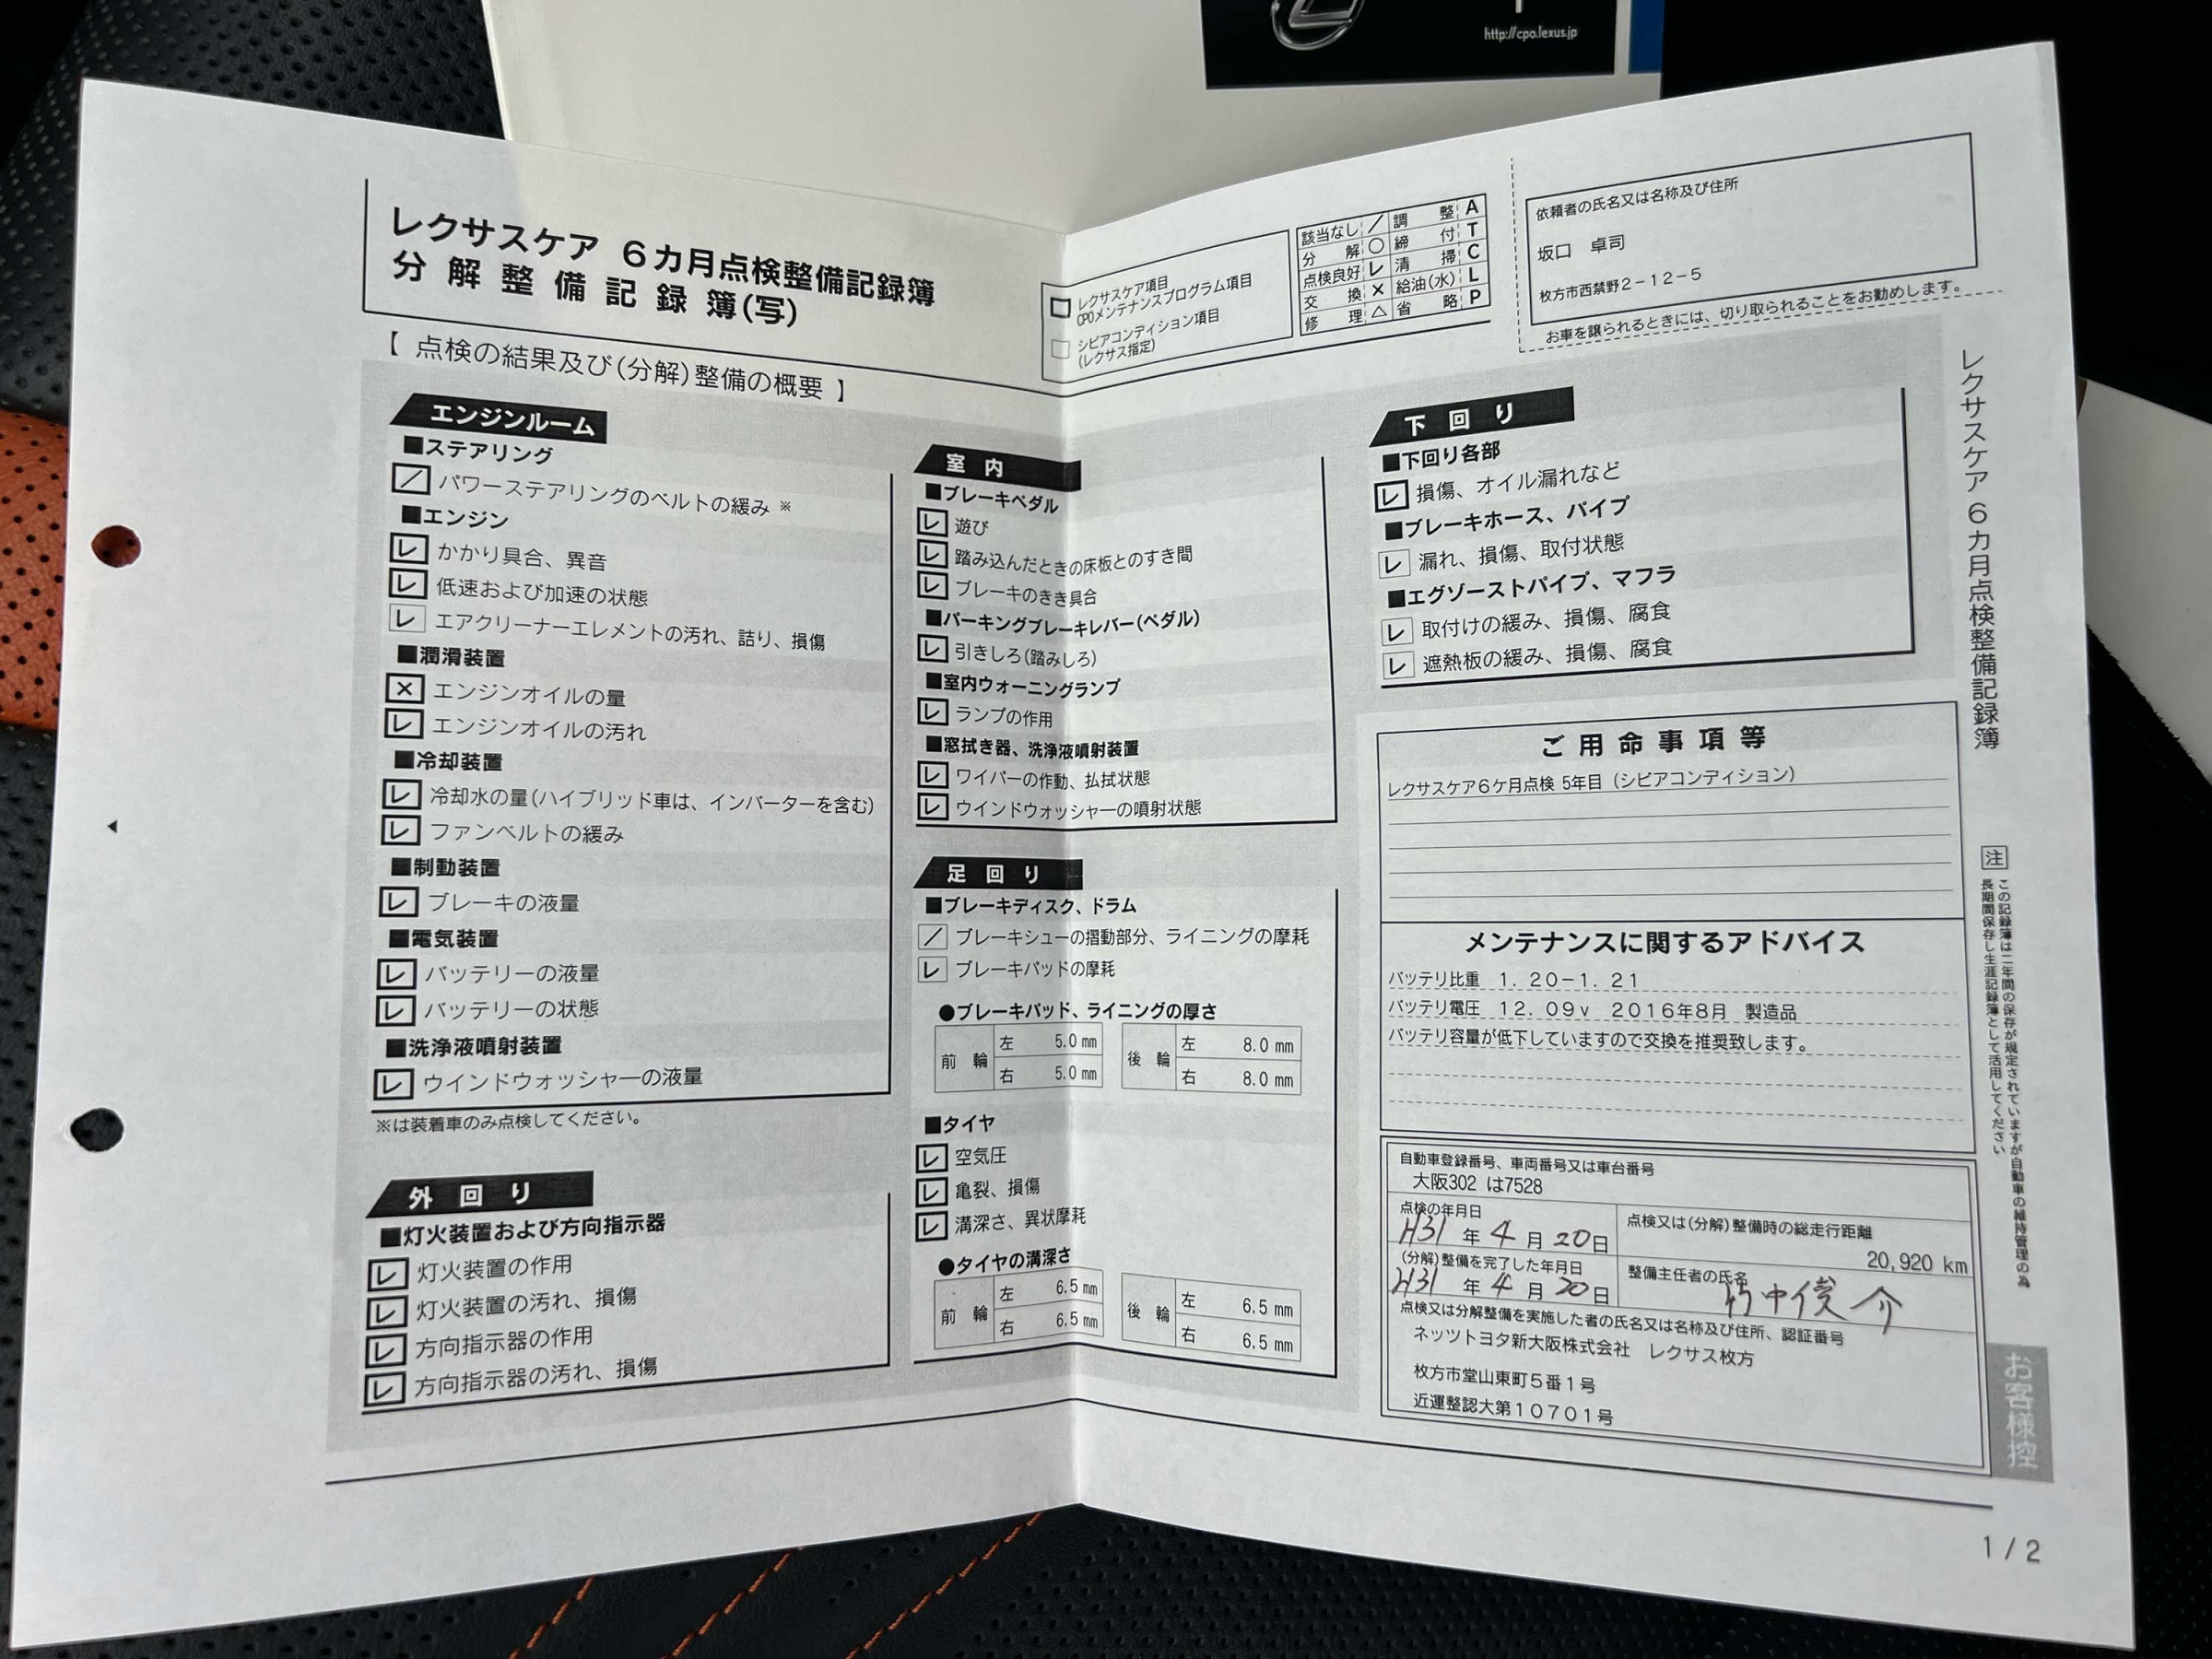 http://cpo.lexus.jp
レクサスケア 6カ月点検整備記録簿
分解整備記録簿(写)
【 点検の結果及び(分解)整備の概要 】
レクサスケア項目
CPOメンテナンスプログラム項目
シビアコンディション項目
(レクサス指定)
該当なし / 調整 A
分解 ○ 締付 T
点検良好 レ 清掃 C
交換 × 給油(水) L
修理 △ 省略 P
依頼者の氏名又は名称及び住所
坂口 卓司
枚方市西禁野2-12-5
お車を譲られるときには、切り取られることをお勧めします。
エンジンルーム
■ステアリング
/ パワーステアリングのベルトの緩み ※
■エンジン
レ かかり具合、異音
レ 低速および加速の状態
レ エアクリーナーエレメントの汚れ、詰り、損傷
■潤滑装置
× エンジンオイルの量
レ エンジンオイルの汚れ
■冷却装置
レ 冷却水の量(ハイブリッド車は、インバーターを含む)
レ ファンベルトの緩み
■制動装置
レ ブレーキの液量
■電気装置
レ バッテリーの液量
レ バッテリーの状態
■洗浄液噴射装置
レ ウインドウォッシャーの液量
※は装着車のみ点検してください。
外回り
■灯火装置および方向指示器
レ 灯火装置の作用
レ 灯火装置の汚れ、損傷
レ 方向指示器の作用
レ 方向指示器の汚れ、損傷
室内
■ブレーキペダル
レ 遊び
レ 踏み込んだときの床板とのすき間
レ ブレーキのきき具合
■パーキングブレーキレバー(ペダル)
レ 引きしろ(踏みしろ)
■室内ウォーニングランプ
レ ランプの作用
■窓拭き器、洗浄液噴射装置
レ ワイパーの作動、払拭状態
レ ウインドウォッシャーの噴射状態
足回り
■ブレーキディスク、ドラム
/ ブレーキシューの摺動部分、ライニングの摩耗
レ ブレーキパッドの摩耗
●ブレーキパッド、ライニングの厚さ
前輪 左 5.0 mm 後輪 左 8.0 mm
右 5.0 mm 右 8.0 mm
■タイヤ
レ 空気圧
レ 亀裂、損傷
レ 溝深さ、異状摩耗
●タイヤの溝深さ
前輪 左 6.5 mm 後輪 左 6.5 mm
右 6.5 mm 右 6.5 mm
下回り
■下回り各部
レ 損傷、オイル漏れなど
■ブレーキホース、パイプ
レ 漏れ、損傷、取付状態
■エグゾーストパイプ、マフラ
レ 取付けの緩み、損傷、腐食
レ 遮熱板の緩み、損傷、腐食
ご用命事項等
レクサスケア6ケ月点検 5年目 (シビアコンディション)
メンテナンスに関するアドバイス
バッテリ比重 1.20-1.21
バッテリ電圧 12.09v 2016年8月 製造品
バッテリ容量が低下していますので交換を推奨致します。
自動車登録番号、車両番号又は車台番号
大阪302 は7528
点検の年月日
H31 年 4 月 20 日
点検又は(分解)整備時の総走行距離
20,920 km
(分解)整備を完了した年月日
H31 年 4 月 20 日
整備主任者の氏名
竹中俊介
点検又は分解整備を実施した者の氏名又は名称及び住所、認証番号
ネッツトヨタ新大阪株式会社 レクサス枚方
枚方市堂山東町5番1号
近運整認大第10701号
レクサスケア 6カ月点検整備記録簿
注
この記録簿は二年間の保存が規定されていますが自動車の維持管理の為
長期間保存し生涯記録簿として活用してください
お客様控
1/2